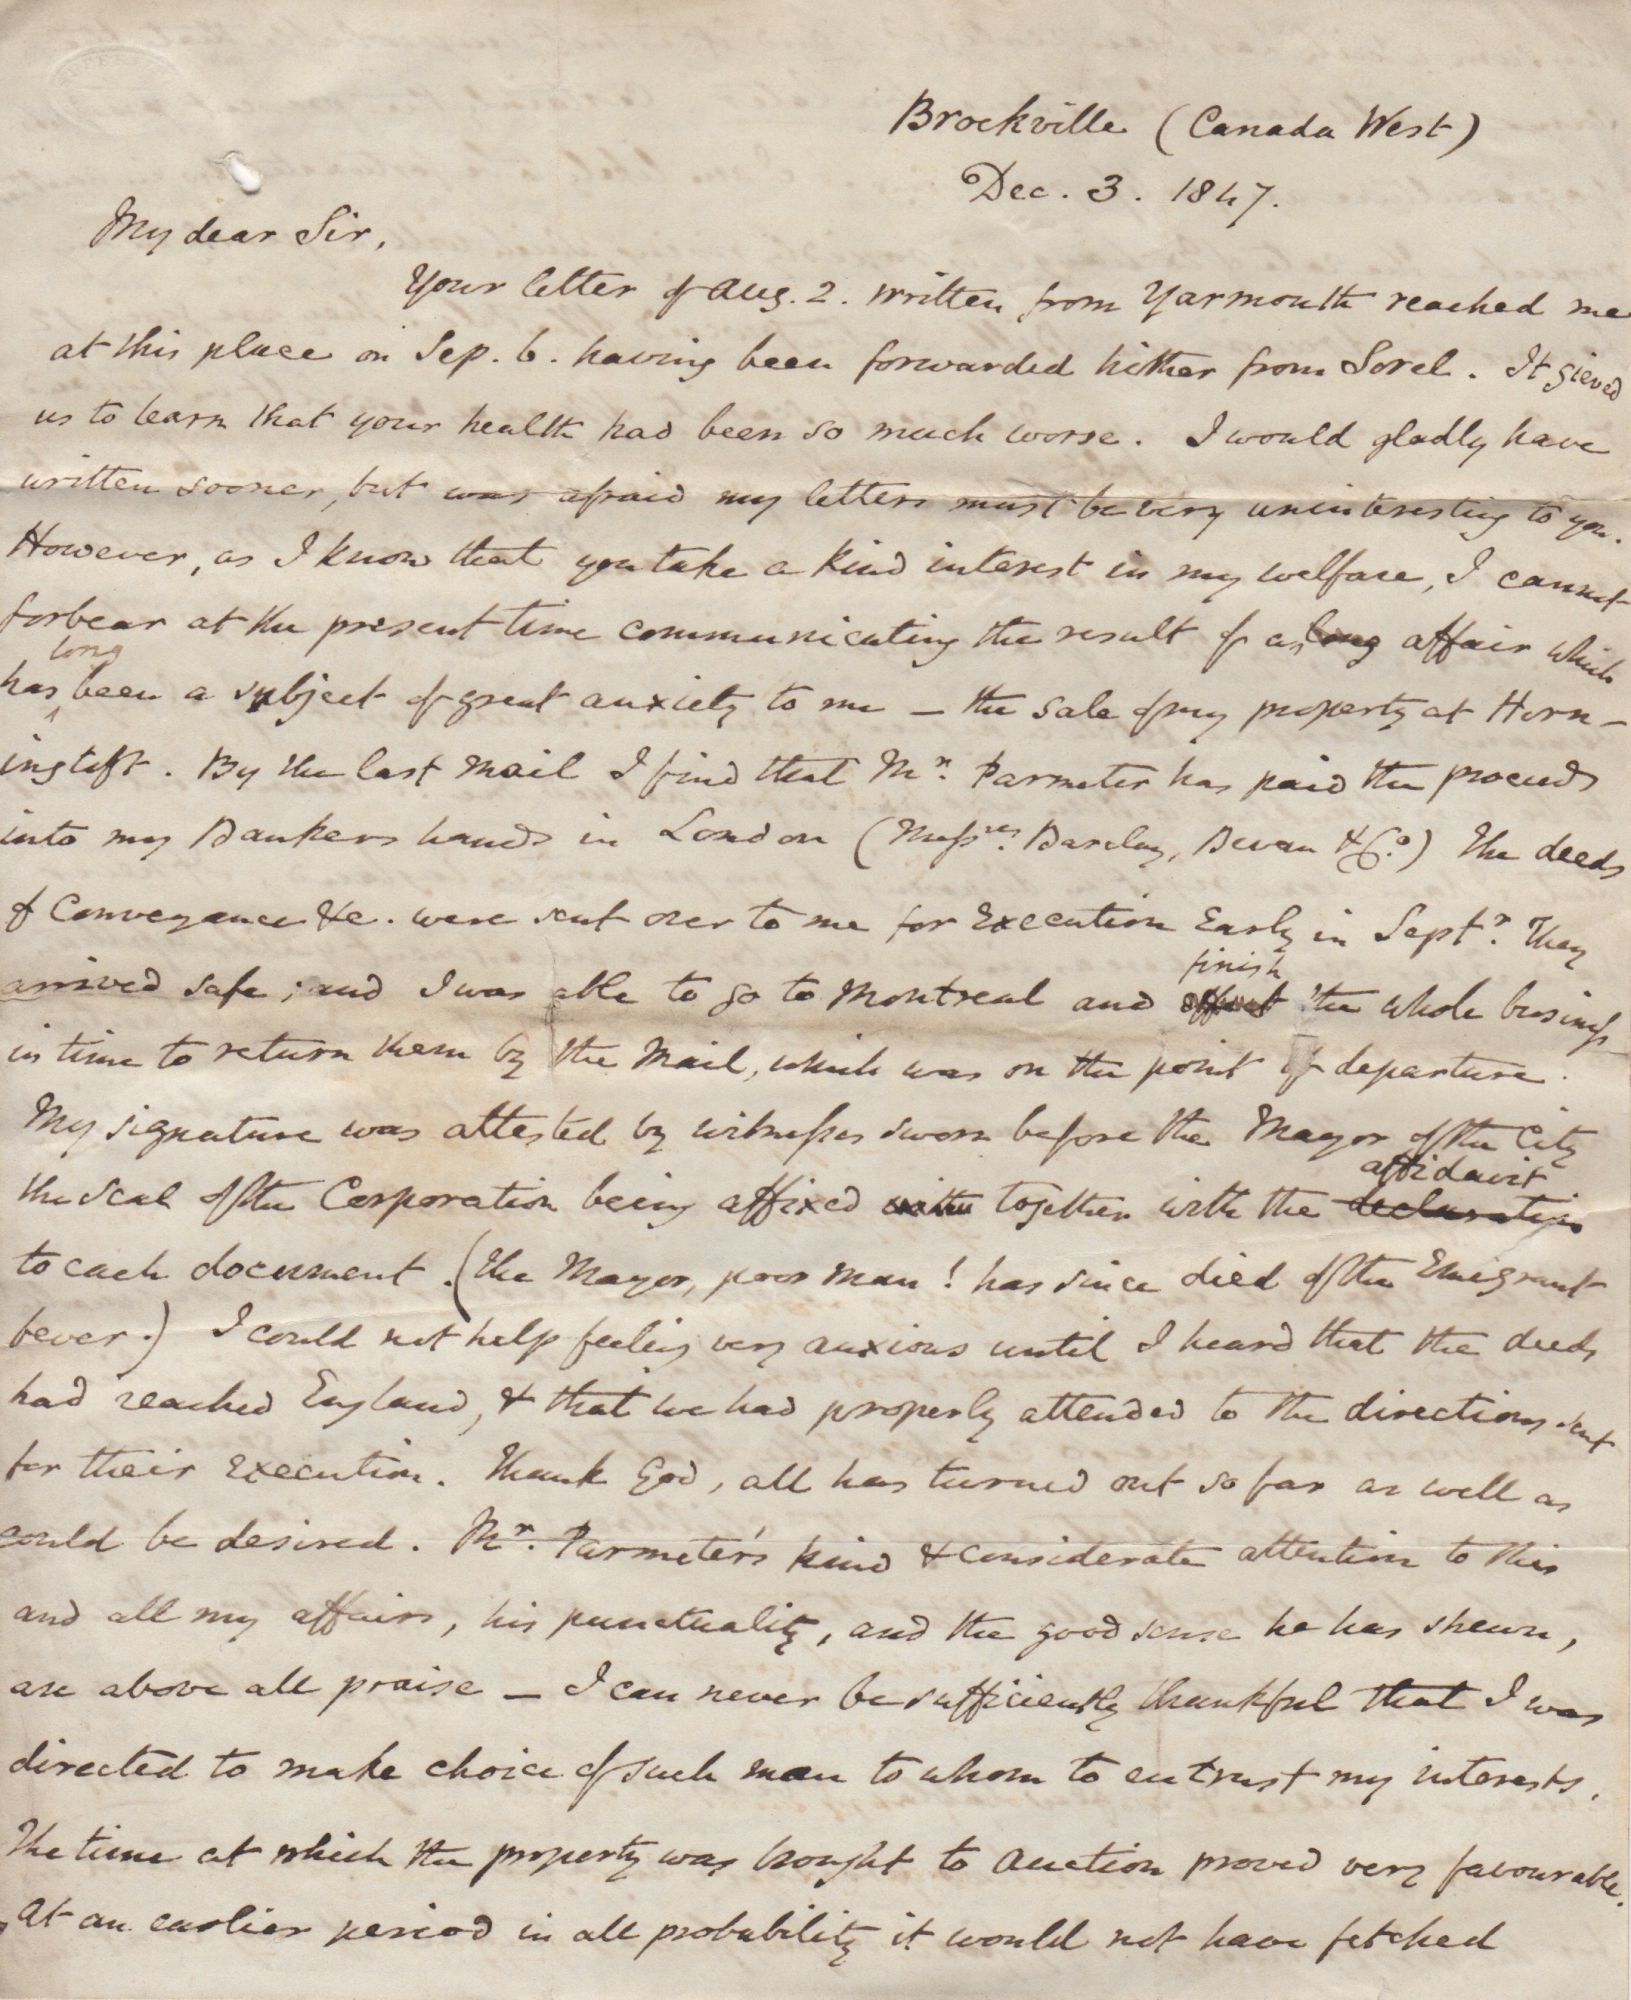 Brockville (Canada West)
Dec. 3. 1847.
My dear Sir,
Your letter of Aug. 2. written from Yarmouth reached me
at this place on Sep. 6. having been forwarded hither from Sorel. It gieved
us to learn that your health had been so much worse. I would gladly have
written sooner, but was afraid my letters must be very uninteresting to you.
However, as I know that you take a kind interest in my welfare, I cannot
forbear at the present time communicating the result of a long affair which
long
has been a subject of great anxiety to me — the sale of my property at Horn-
ingtoft. By the last mail I find that Mr. Parmeter has paid the proceeds
into my Bankers hands in London (Messrs. Barclay, Bevan & Co.) The deeds
of Conveyance &c. were sent over to me for Execution Early in Septr. They
arrived safe; and I was able to go to Montreal and
finish
the whole business
in time to return them by the Mail, which was on the point of departure.
My signature was attested by witnesses sworn before the Mayor of the City
the Seal of the Corporation being affixed with together with the declaration
affidavit
to each document. (The Mayor, poor man! has since died of the Emigrant
fever.) I could not help feeling very anxious until I heard that the deeds
had reached England, & that we had properly attended to the directions sent
for their execution. Thank God, all has turned out so far as well as
could be desired. Mr. Parmeter's kind & considerate attention to this
and all my affairs, his punctuality, and the good sense he has shewn,
are above all praise — I can never be sufficiently thankful that I was
directed to make choice of such man to whom to entrust my interests.
The time at which the property was brought to Auction proved very favourable.
At an earlier period in all probability it would not have fetched